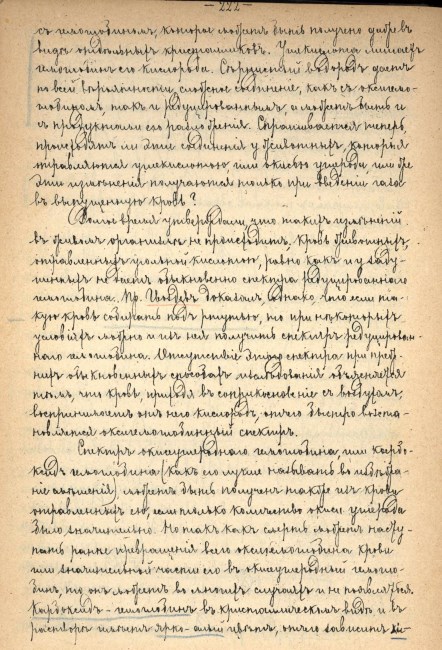 - 222 -
съ гемоглобиномъ, которое можетъ быть получено даже въ
видѣ отдѣльныхъ кристалликовъ. Углекислота лишаетъ
гемоглобинъ его кислорода. Сѣрнистый водородъ даетъ
по всей вѣроятности, сложное соединенie, какъ съ оксигемо-
глобиномъ, такъ и редуцированнымъ, а можетъ быть и
съ продуктами его разложенія. Спрашивается теперь,
происходятъ ли эти соединенія у животныхъ, которыя
отравляются углекислотою, или окисью углерода, или же
эти измѣненія получаются только при введеніи газа
въ выпущенную кровь?
Долгое время утверждали, что такихъ измѣненій
въ живомъ организмѣ не происходитъ. Кровь животныхъ,
отравленныхъ угольной кислотою, равно какъ и у задушенныхъ
не даетъ обыкновенно спектра редуцированнаго
гемоглобина. Пр. доказалъ, однако, что если та-
кую кровь собирать подъ ртутью, то при нѣкоторыхъ
условіяхъ можно и изъ нея получить спектръ редуцирован-
наго гемоглобина. Отсутствіе этого спектра при преж-
нихъ обыкновенныхъ способахъ изслѣдованій объясняется
тѣмъ, что кровь, приходя въ соприкосновеніе съ воздухомъ,
воспринимаетъ отъ него кислородъ, отчего быстро возста-
новляется оксигемоглобинный спектръ.
Спектръ окисьуглероднаго гемоглобина, или карбо-
ксидъ гемоглобина (какъ его лучше называть во избѣжа-
ніе смѣшенія) можетъ быть полученъ также изъ крови
отравленныхъ ею, если только количество окиси углерода
было значительно. Но такъ какъ смерть можетъ насту-
пить ранѣе превращенія всего оксигемоглобина крови
или значительной части его въ окисьуглеродный гемогло-
бинъ, то онъ можетъ во многихъ случаяхъ и не появляться.
Карбоксидъ-гемоглобинъ въ кристаллическомъ видѣ и въ
растворѣ имѣетъ ярко-алый цвѣтъ, отчего зависитъ